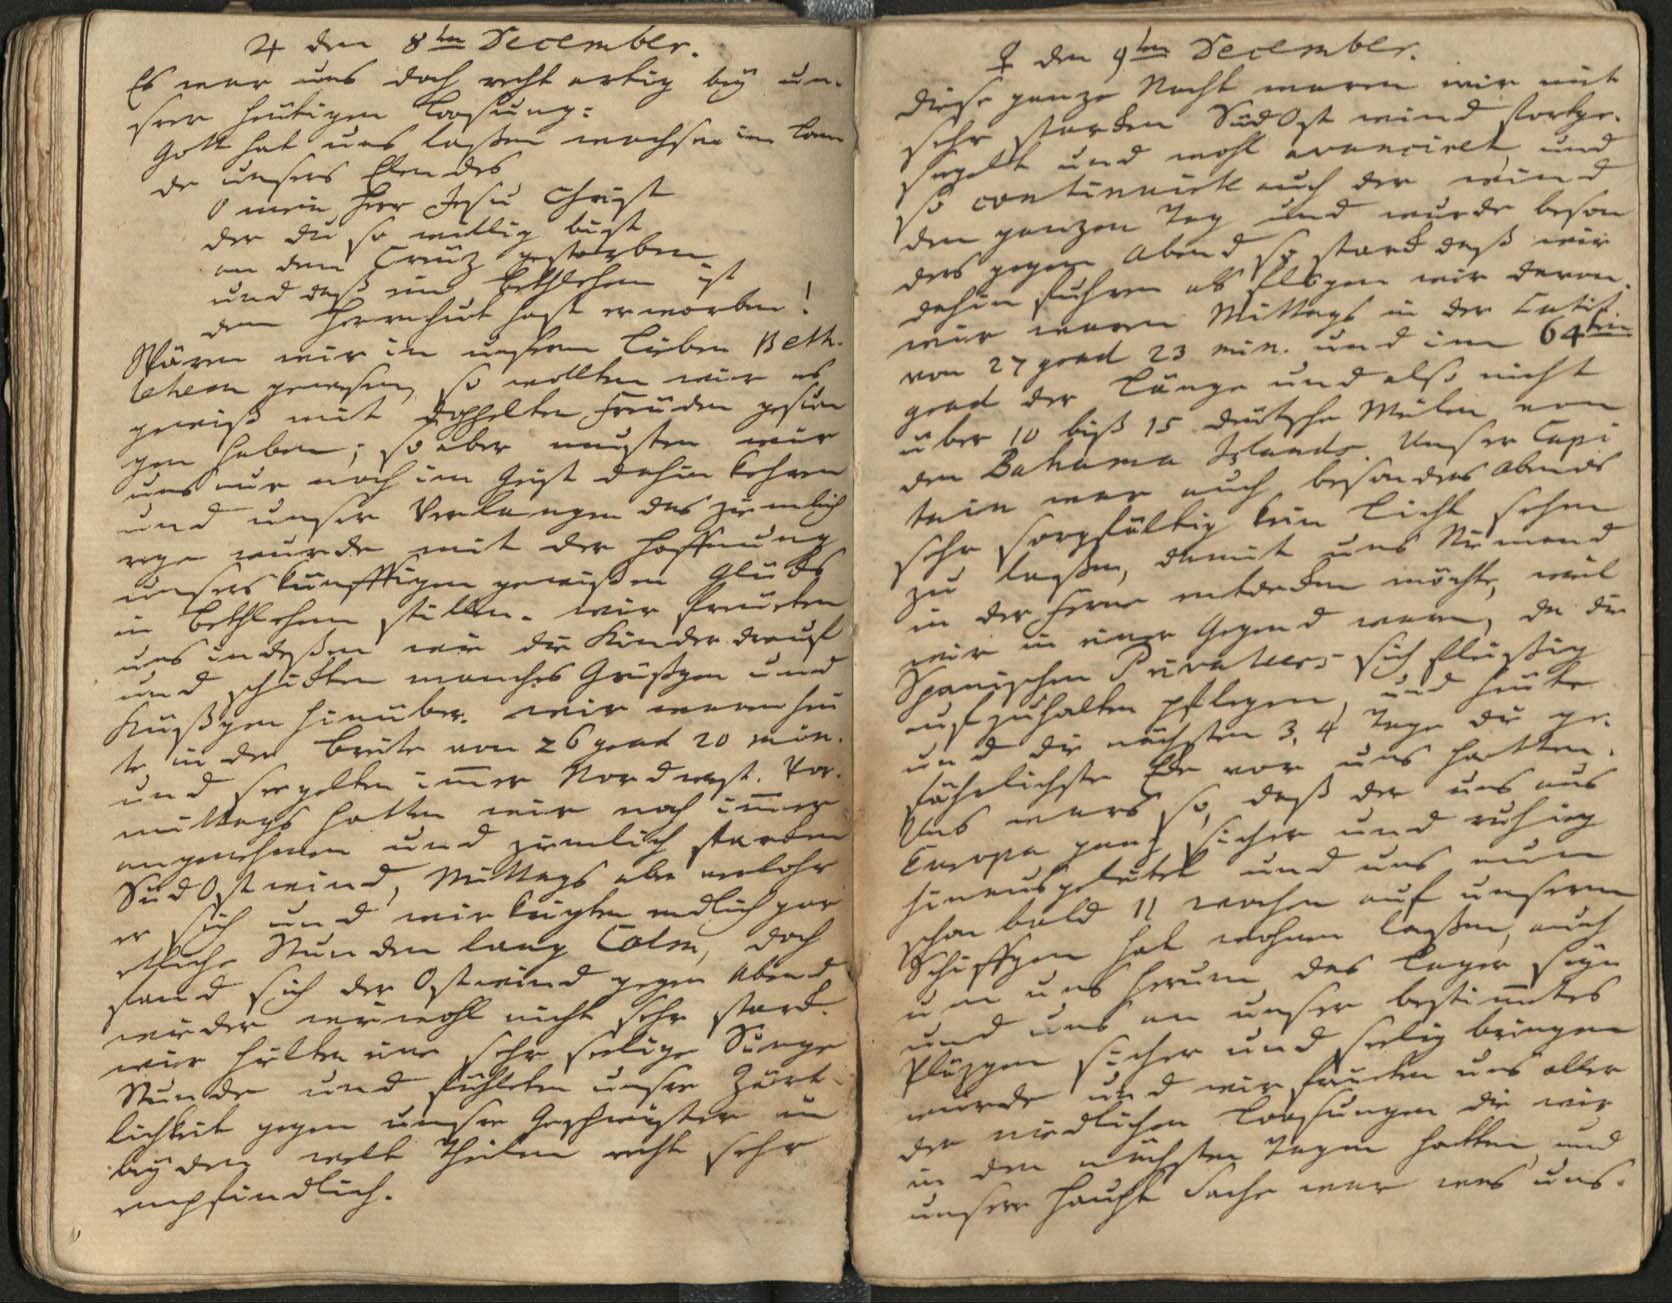 ♃ den 8ten December.
Es war uns doch recht artig bey un-
srer heutigen Loosung:
Gott hat uns laßen wachsen im Lan
de unsers Elendes
O mein Herr Jesu Christ
der du so willig bist
an dem Creuz gestorben
und daß ein Bethlehem ist
dem Herrnhut hast erworben!
Wären wir in unserm lieben Beth-
lehem gewesen, so wollten wir es
gewiß mit doppelten Freuden gesun
gen haben; so aber musten wir
uns nur noch im Geist dahin kehren
und unser Verlangen das ziemlich
rege wurde mit der Hoffnung
unsers künfftigen gewißen Glücks
in Bethlehem stillen. Wir freueten
uns indeßen wie die Kinder drauf
und schickten manches Grüßgen und
Küßgen hinüber. Wir waren heu
te in der Breite von 26 grad 20 min.
und seegelten im̅er Nordwest. Vor-
mittags hatten wir noch im̅er
angenehmen und ziemlich starken
SüdOstwind, Mittags aber verlohr
er sich und wir kriegten endlich gar
etliche Stunden lang Calm, doch
fand sich der Ostwind gegen Abend
wieder wiewohl nicht sehr starck.
Wir hielten eine sehr seelige Singe
Stunde und fühleten unsre Zärt-
lichkeit gegen unsre Geschwister in
beyden welt Theilen recht sehr
empfindlich.
♀ den 9ten December.
Diese ganze Nacht waren wir mit
sehr starcken SüdOst wind fortge-
seegelt und wohl avanciret, und
so continuirte auch der wind
den ganzen Tag und wurde beson
ders gegen Abend so starck daß wir
dahin fuhren als flögen wir davon.
wir waren Mittags in der Latit.
von 27 grad 23 min. und im 64ten
grad der Länge und also nicht
über 10 biß 15 deutsche Meilen von
den Bahama Islands. Unser Capi
tain war auch besonders Abends
sehr sorgfältig kein Licht sehen
zu laßen, damit uns Niemand
in der Ferne entdecken möchte, weil
wir in einer Gegend waren, da die
Spanischen Privateers sich fleißig
aufzuhalten pflegen, und heute
und die nächsten 3, 4 Tage die ge-
fährlichste Ecke vor uns hatten.
Uns wars so, daß der uns aus
Europa ganz sicher und ruhig
hinausgeleitet und uns nun
schon bald 11 wochen auf unserm
Schiffgen hat wohnen laßen, auch
um uns herum das Lager seyn
und uns an unser bestim̅tes
Pläzgen sicher und seelig bringen
würde und wir freueten uns aller
der niedlichen Loosungen die wir
in den nächsten Tagen hatten und
unsere Haupt Sache war was uns.